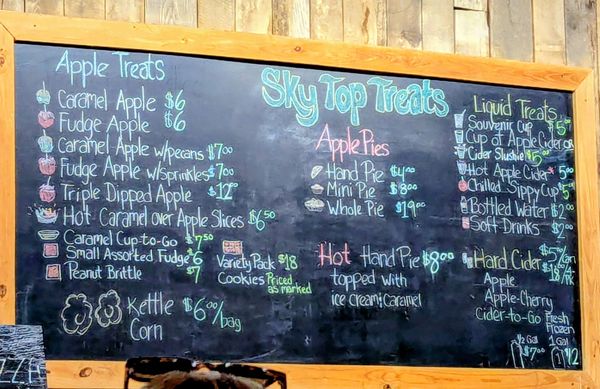 Sky Top Treats
Apple Treats
Caramel Apple $6
Fudge Apple $6
Caramel Apple w/pecans $7.00
Fudge Apple w/sprinkles $7.00
Triple Dipped Apple $12.00
Hot Caramel over Apple Slices $6.50
Caramel Cup-to-Go $7.50
Small Assorted Fudge $6
Peanut Brittle $7
Variety Pack $18
Cookies Priced as marked
Kettle Corn $6.00/bag
Apple Pies
Hand Pie $4.00
Mini Pie $8.00
Whole Pie $19.00
Hot Hand Pie $8.00
topped with
ice cream & caramel
Liquid Treats
Souvenir Cup $5
Cup of Apple Cider
Cider Slushie $5.00
Hot Apple Cider 5.00
Chilled Sippy Cup $5
Bottled Water $2
Soft Drinks
Hard Cider $5/can
Apple
Apple-Cherry
Cider-to-Go Fresh
Frozen
1/2 Gal 1 Gal
$7.00 $12
ZZA